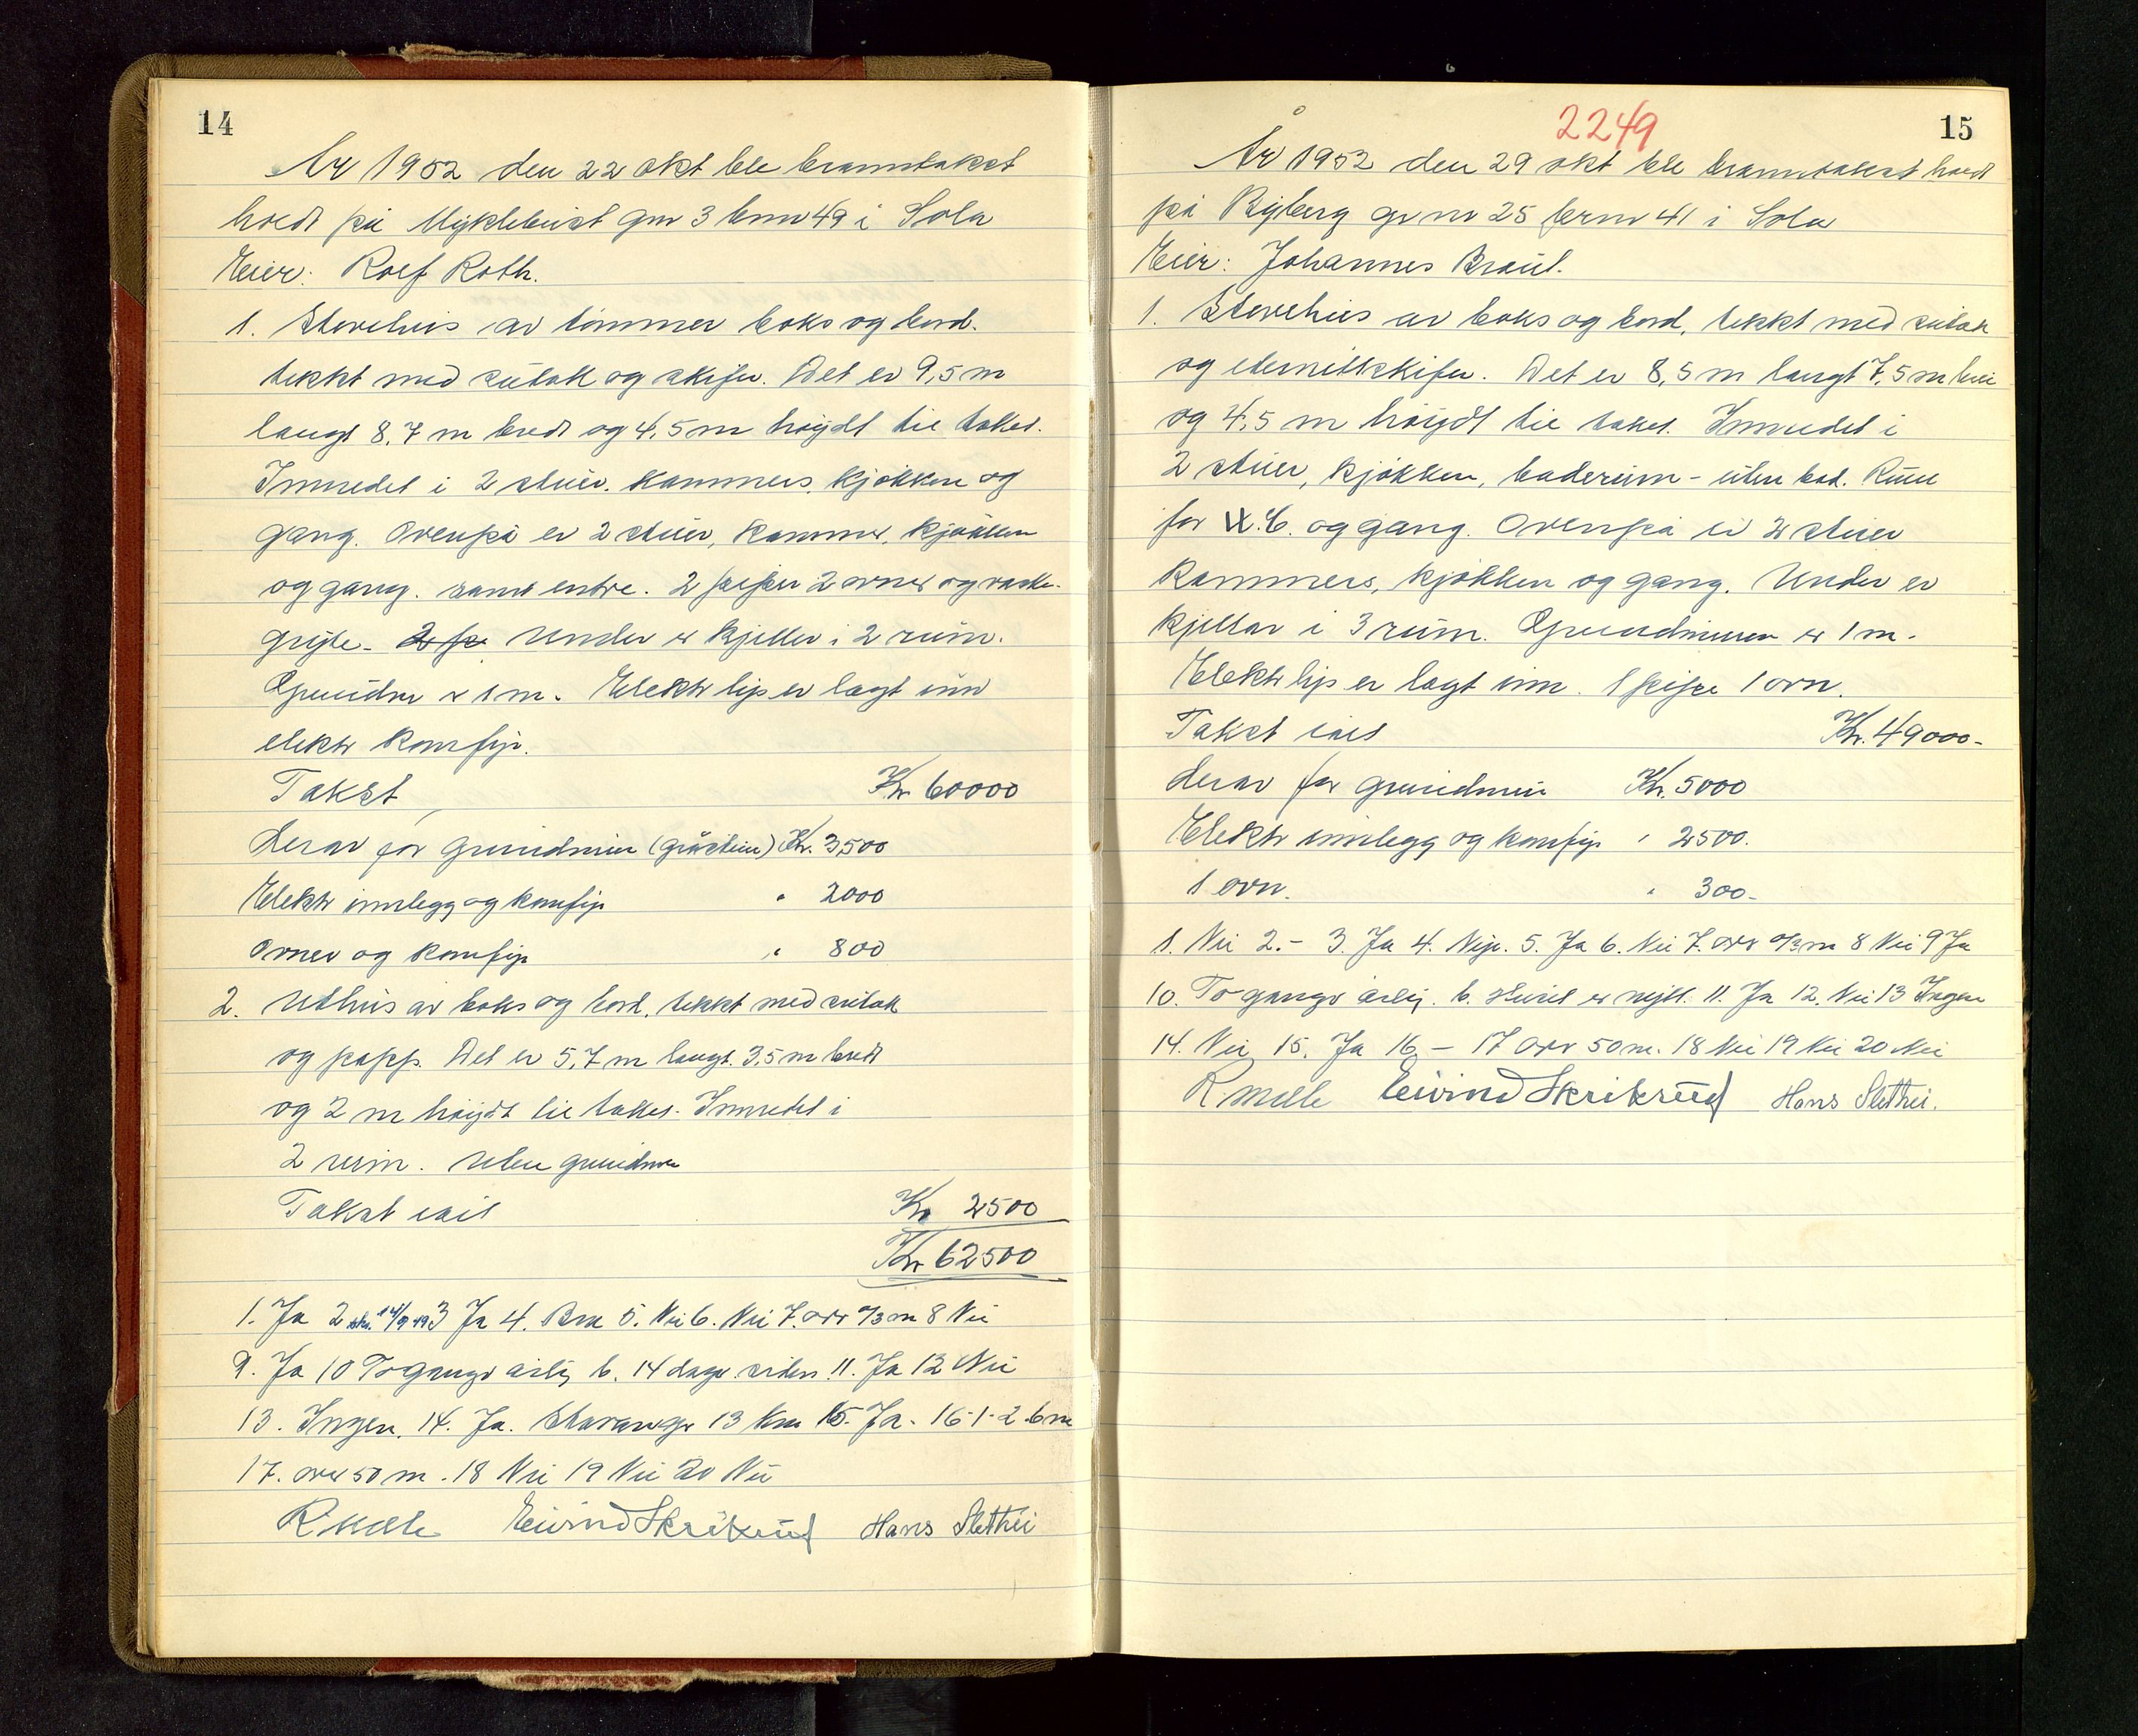 14
År 1952 den 22 okt ble branntakst
holdt på Myklebust gnr 3 bnr 49 i Sola
Eier: Rolf Roth.
1. Stovehus av tømmer boks og bord.
tekkt med sutak og skifer. Det er 9,5 m
langt 8,7 m bredt og 4,5 m høydt til taket.
Innredet i 2 stuer. Kammers, kjøkken og
gang. Ovenpå er 2 stuer, kammer, kjøkken
og gang. samt entre. 2 peiser 2 ovner og vaske-
gryte. 2 pe Under er kjeller i 2 rum.
Grundm er 1 m. Elektr lys er lagt inn
elektr komfyr.
Takst Kr 60000
derav for grundmur (gråstein) Kr. 3500
Elektr innlegg og komfyr " 2000
Ovner og komfyr " 800
2. Uthus av boks og bord, tekkt med sutak
og papp. Det er 5,7 m langt. 3,5 m bredt
og 2 m høydt til taket. Innredet i
2 rum. Uten grundmur
Takst ialt Kr 2500
Kr 62500
1. Ja 2 14/9 49 3 Ja 4. 5. Nei 6. Nei 7. over 3 m 8 Nei
9. Ja 10 To ganger årlig b. 14 dager siden. 11. Ja 12 Nei
13. Ingen. 14. Ja. Stavanger 13 km 15. Ja. 16-1-2-6m
17. over 50 m. 18 Nei 19 Nei 20 Nei
R Melle Eivind Skrikrud Hans Slethei
2249
15
År 1952 den 29 okt ble branntakst holdt
på Ryberg gr nr 25 brnr 41 i Sola
Eier: Johannes Braut.
1. Stovehus av boks og bord, tekkt med sutak
og eternittskifer. Det er 8,5 m langt 7,5 m brei
og 4,5 m høydt til taket. Innredet i
2 stuer, kjøkken, baderum - uten bad. Rum
for W.C. og gang. Ovenpå er 2 stuer
Kammers, kjøkken og gang. Under er
kjellar i 3 rum. Grundmuren er 1 m.
Elektr lys er lagt inn. 1 peise 1 ovn.
Takst ialt Kr. 49000-
derav for grundmur Kr. 5000
Elektr innlegg og komfyr " 2500.
1 ovn. " 300-
1. Nei 2. - 3. Ja 4. Nye. 5. Ja 6. Nei 7. over 3 m 8 Nei 9 Ja
10. To ganger årlig. b. Huset er nytt. 11. Ja 12. Nei 13 Ingen
14. Nei 15. Ja 16 - 17 over 50 m. 18 Nei 19 Nei 20 Nei
R Melle Eivind Skrikrud Hans Slethei.